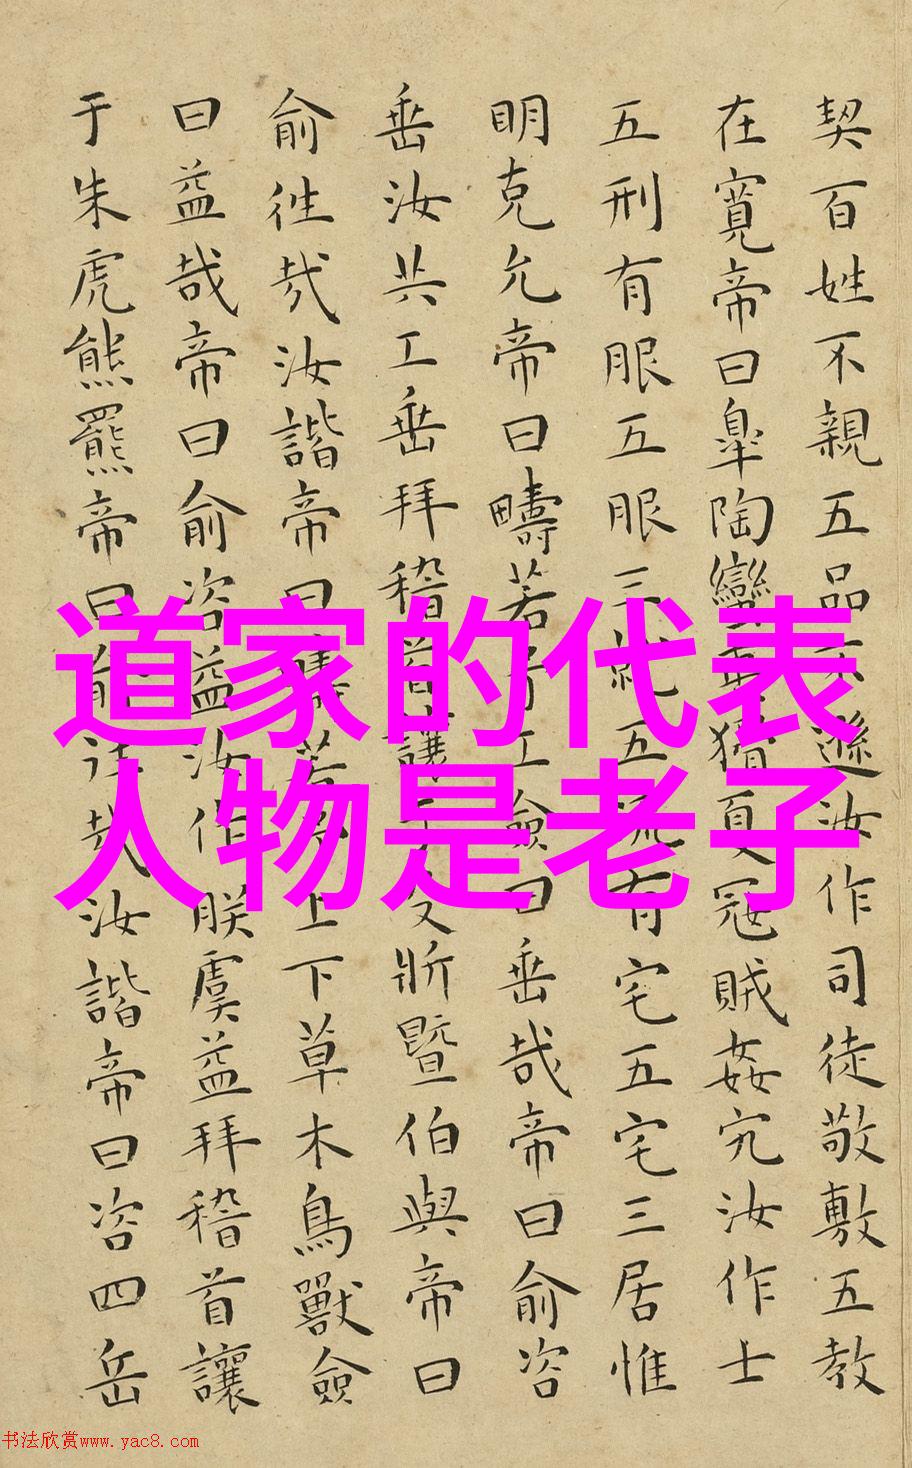 契百姓不親五品不遜汝作司徒敬敷五教
在寬帝曰皐陶蠻夷猾夏冦賊姦宄汝作士
五刑有服五服三就五流有宅五宅三居惟
明克允帝曰疇若予工僉曰垂哉帝曰俞咨
垂汝共工垂拜稽首讓于殳斨暨伯與帝曰
俞往哉汝諧帝曰疇若予上下草木鳥獸僉
曰益哉帝曰俞咨益汝作朕虞益拜稽首讓
于朱虎熊羆帝曰俞往哉汝諧帝曰咨四岳
道家的代表
人物是老子
书法欣赏www.yac8.com